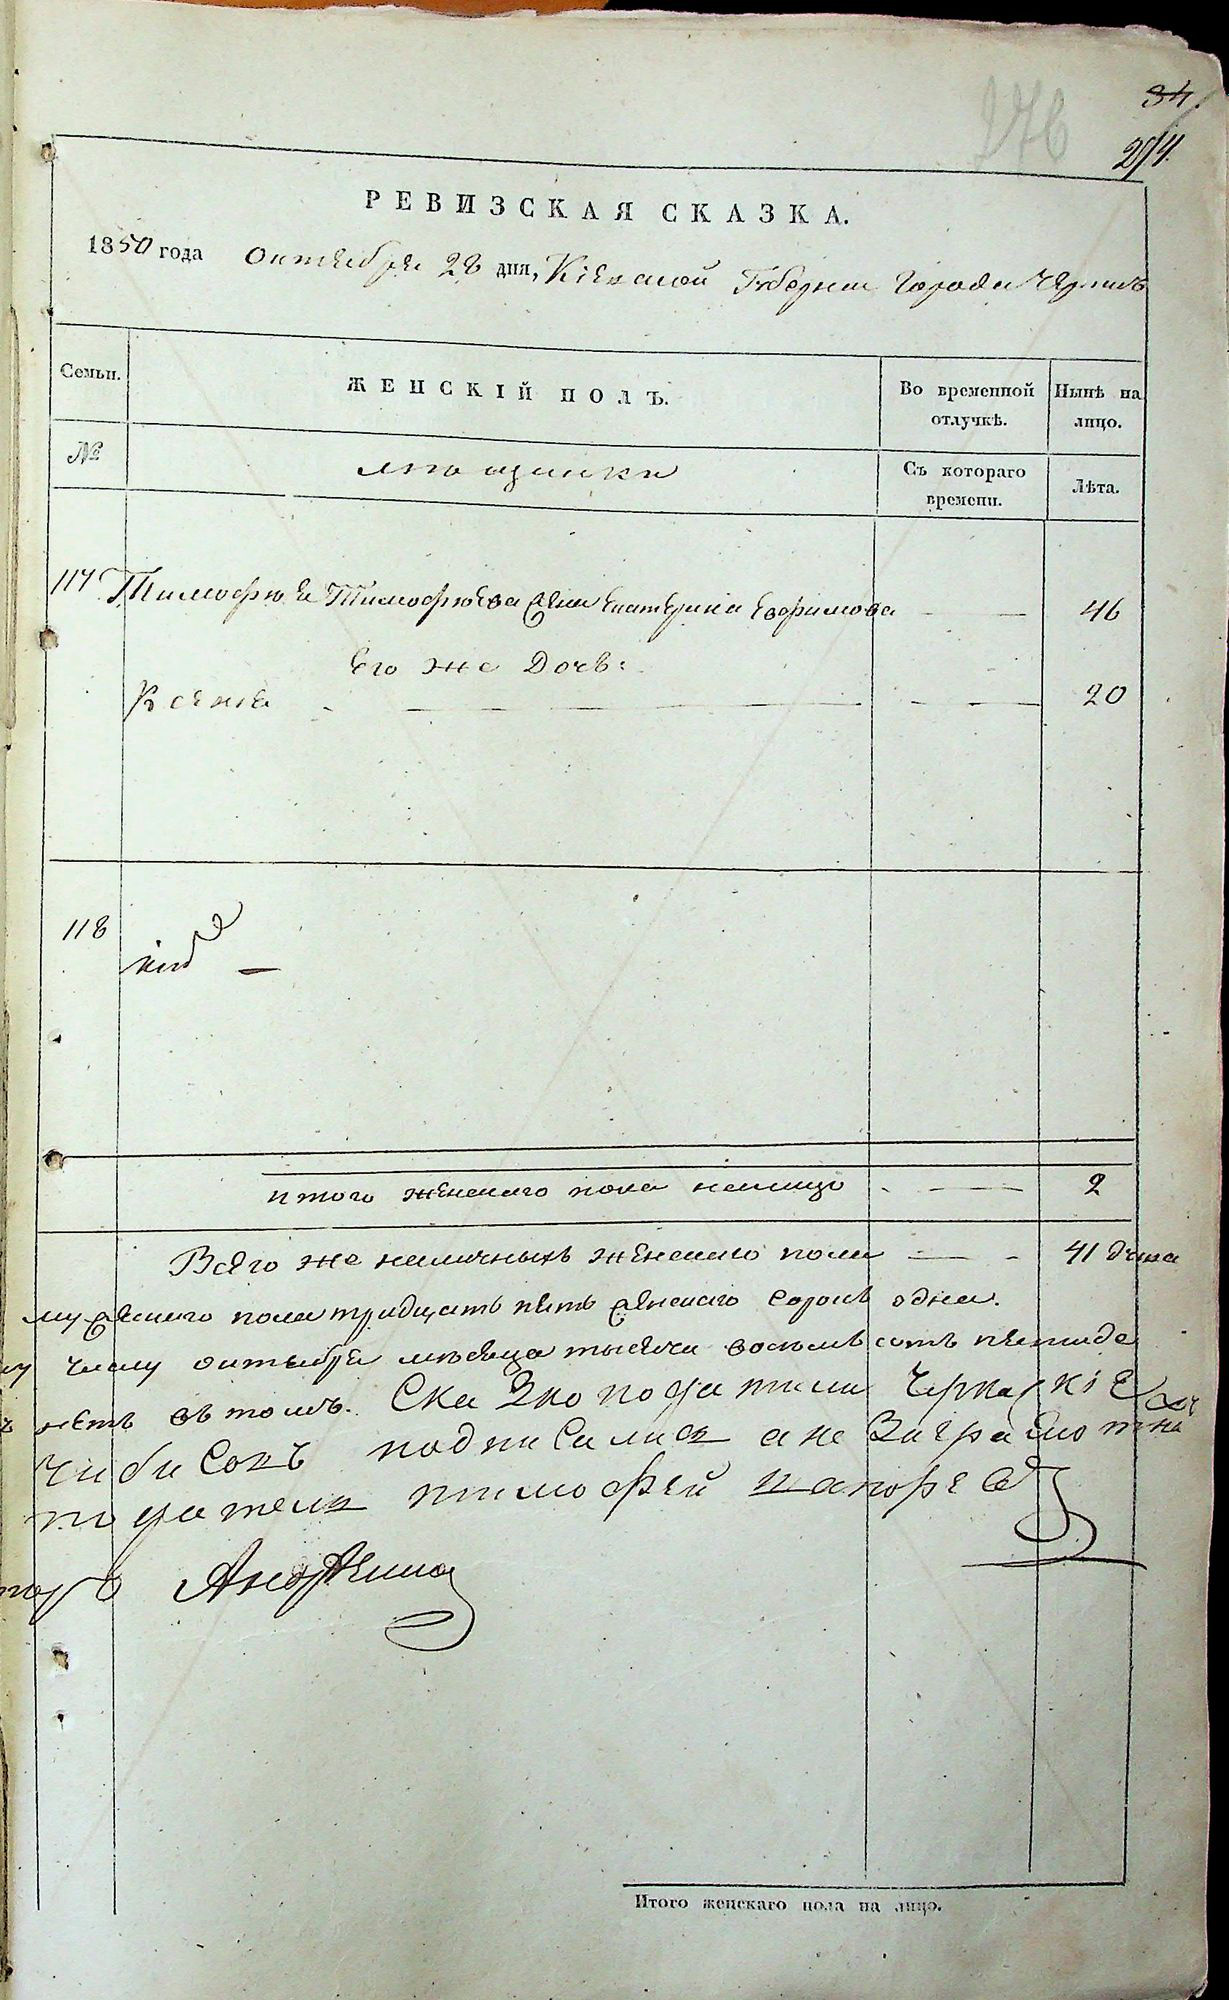 34.
276
274.
РЕВИЗСКАЯ СКАЗКА.
1850 года октября 28 дня, Кіевской Губерніи города Черкасъ
Семьи.
ЖЕНСКІЙ ПОЛЪ.
Во временной отлучкѣ.
Нынѣ на лицо.
№
мещанки
Съ котораго времени.
Лѣта.
117 Тимофѣя Тимофѣева жена Екатерина Ефимова 46
Его же Дочь:
Ксенія 20
118
Итого женскаго пола налицо 2
Всего же наличныхъ женскаго пола 41 душа
мужескаго пола тридцать пять женскаго сорокъ одна.
числу октября мѣсяца тысяча восемь сотъ пятьде
нетъ въ томъ. Сказко податили Черкаскіе
подписались а не
податель тимофей